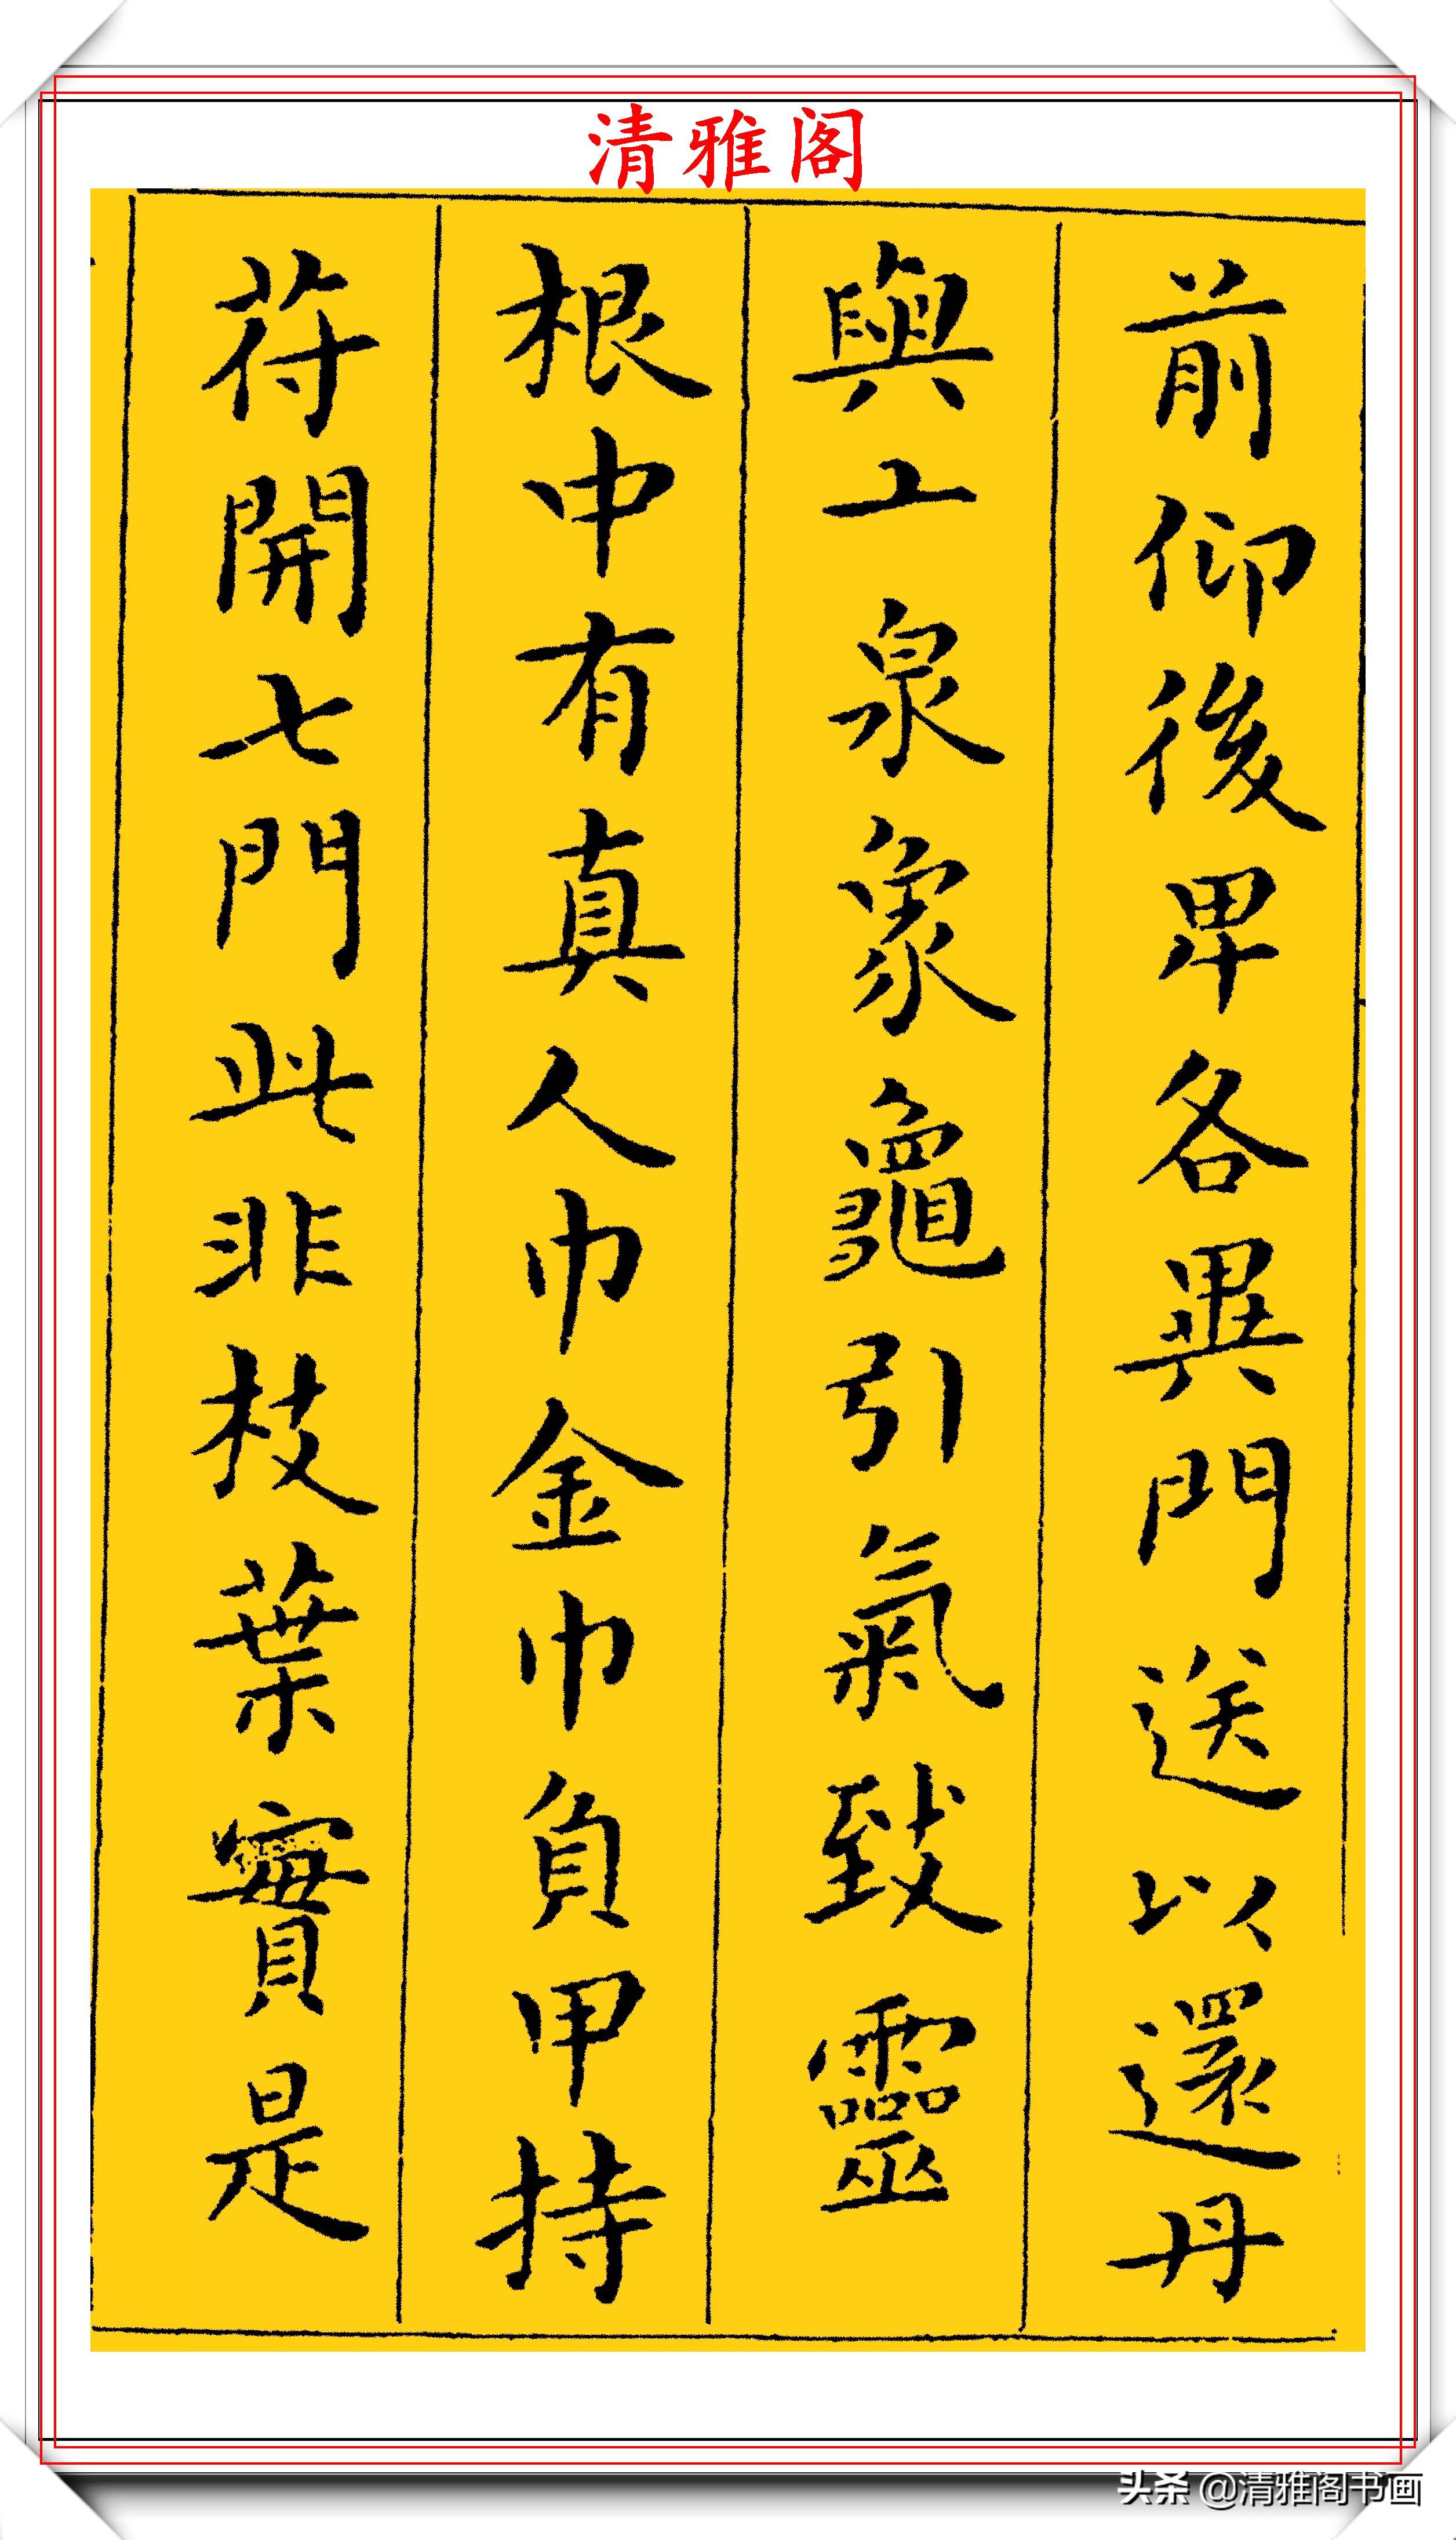 清雅阁
前仰後卑各異門送以還丹
與工泉象龜引氣致靈
根中有真人巾金巾負甲持
苻開七門此非枝葉實是
头条 @清雅阁书画